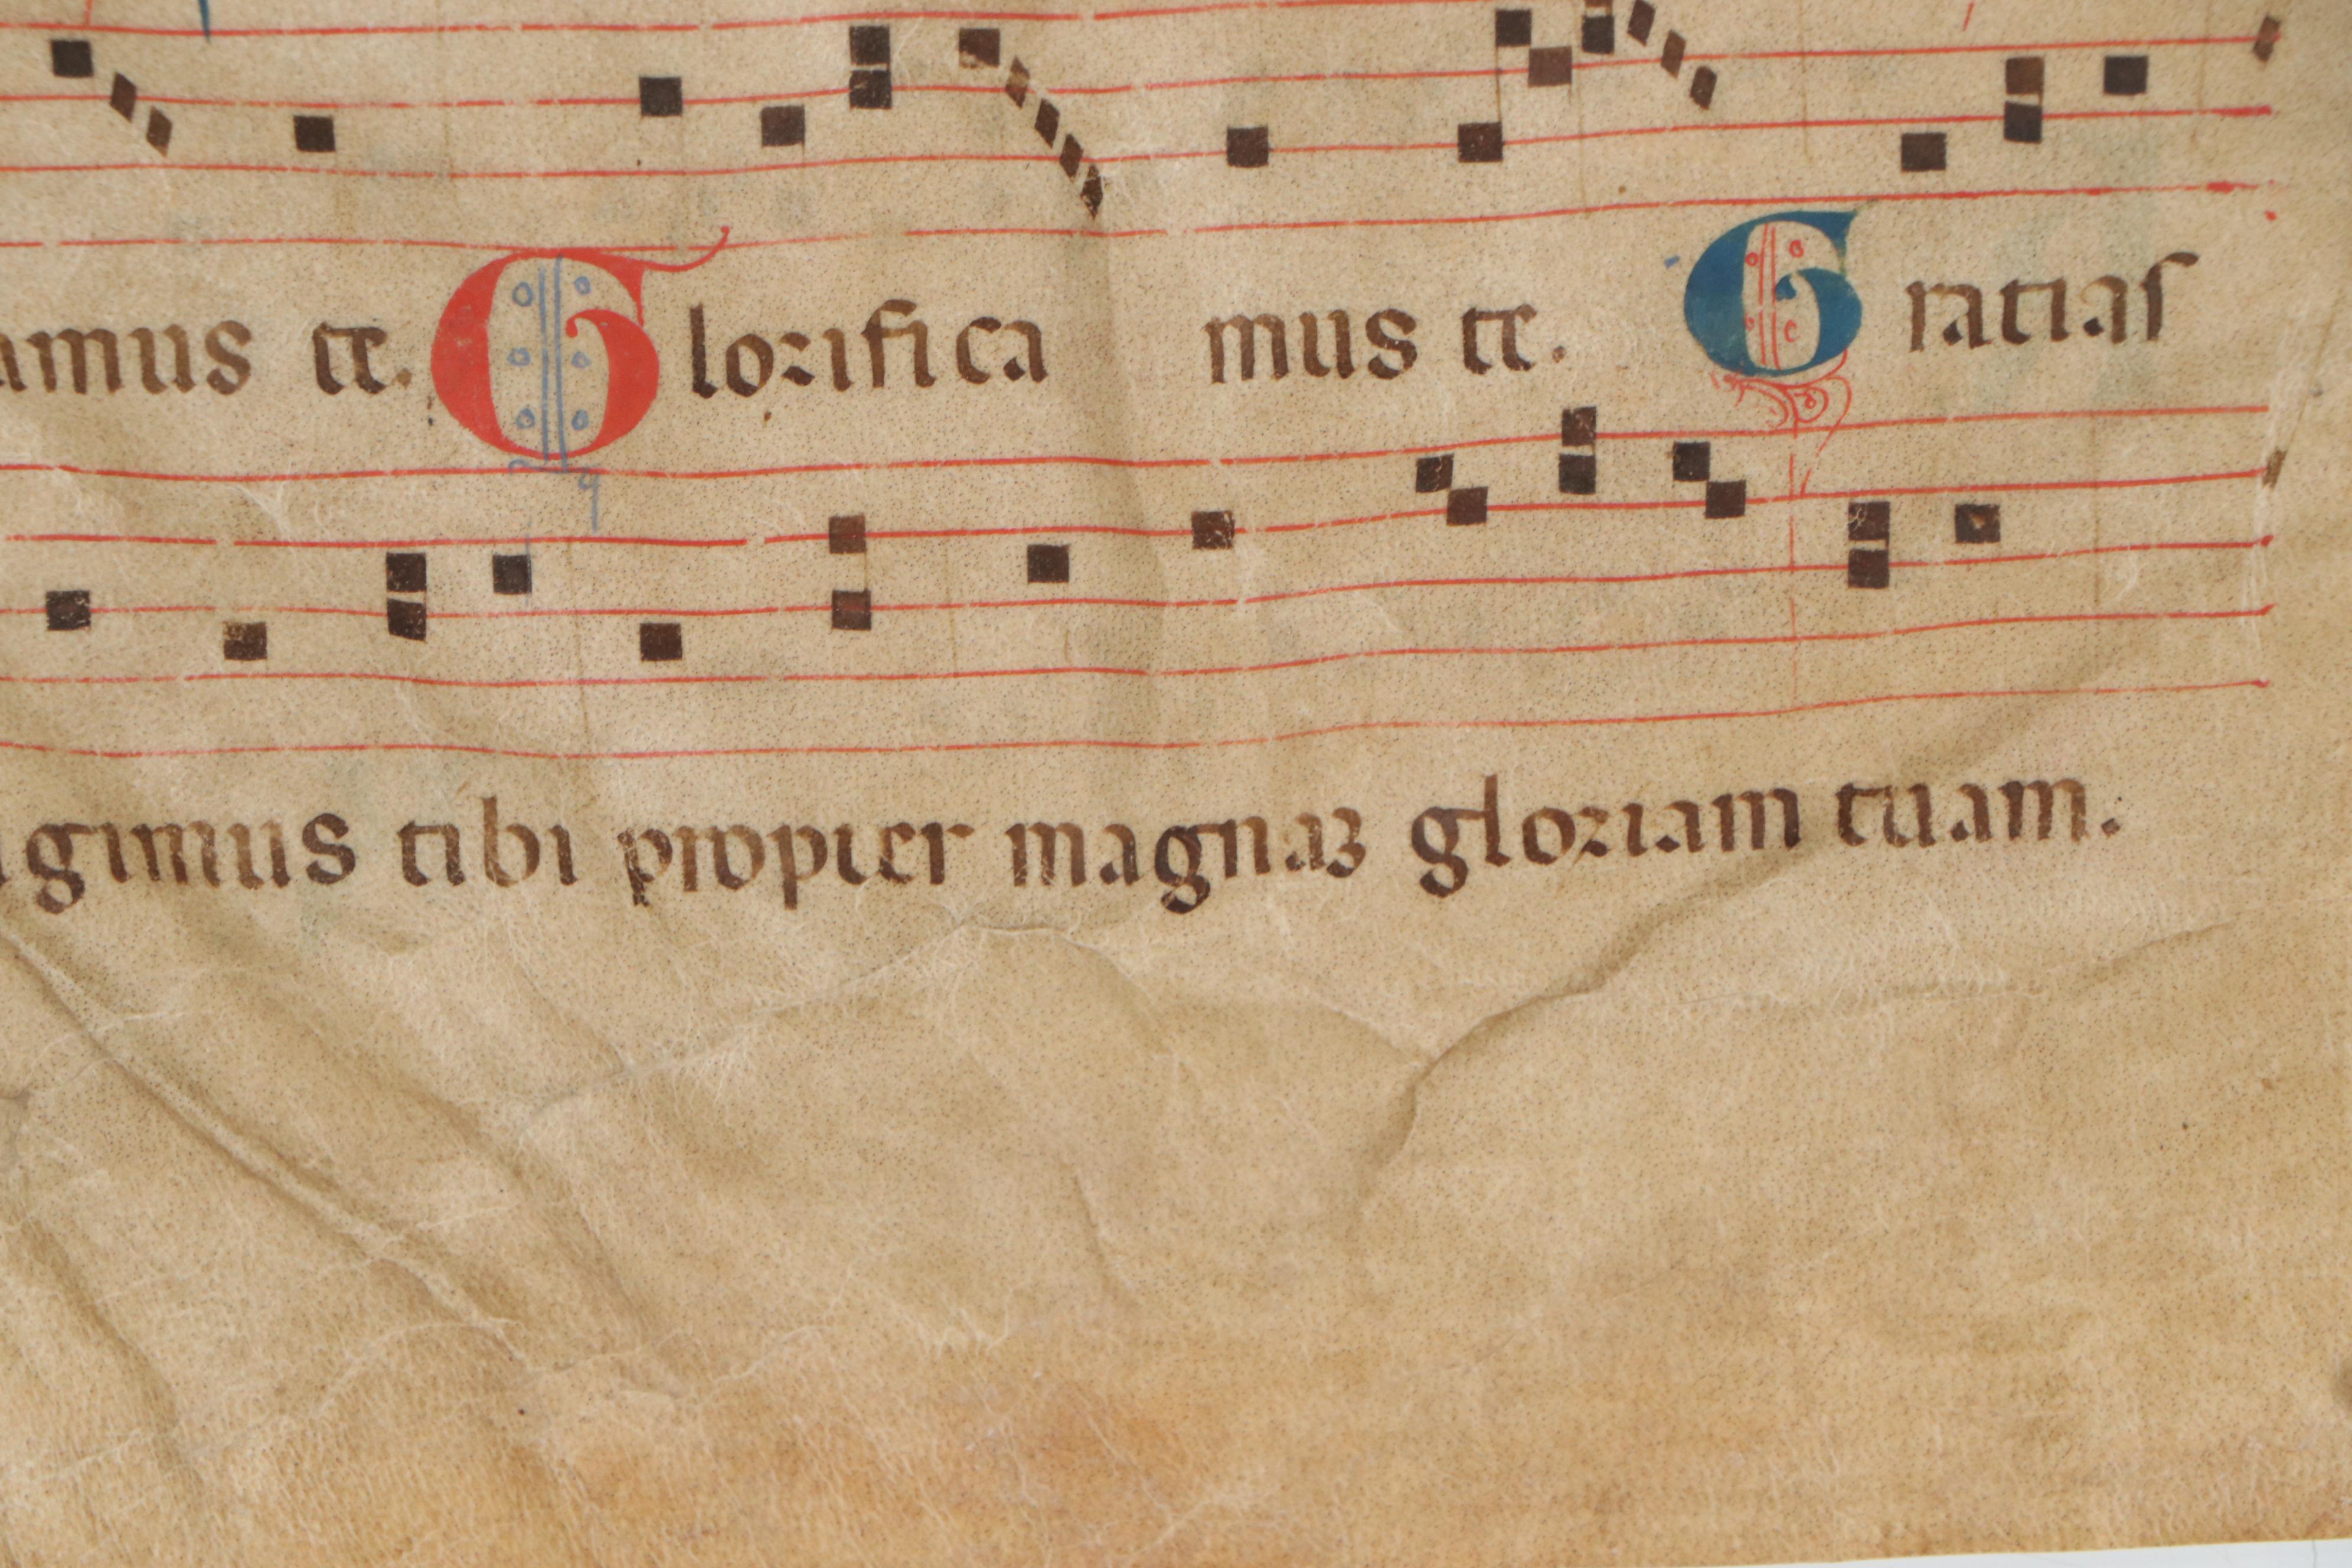 amus te. Glorifica mus te. Gratias
gimus tibi propter magnaꝫ gloriam tuam.